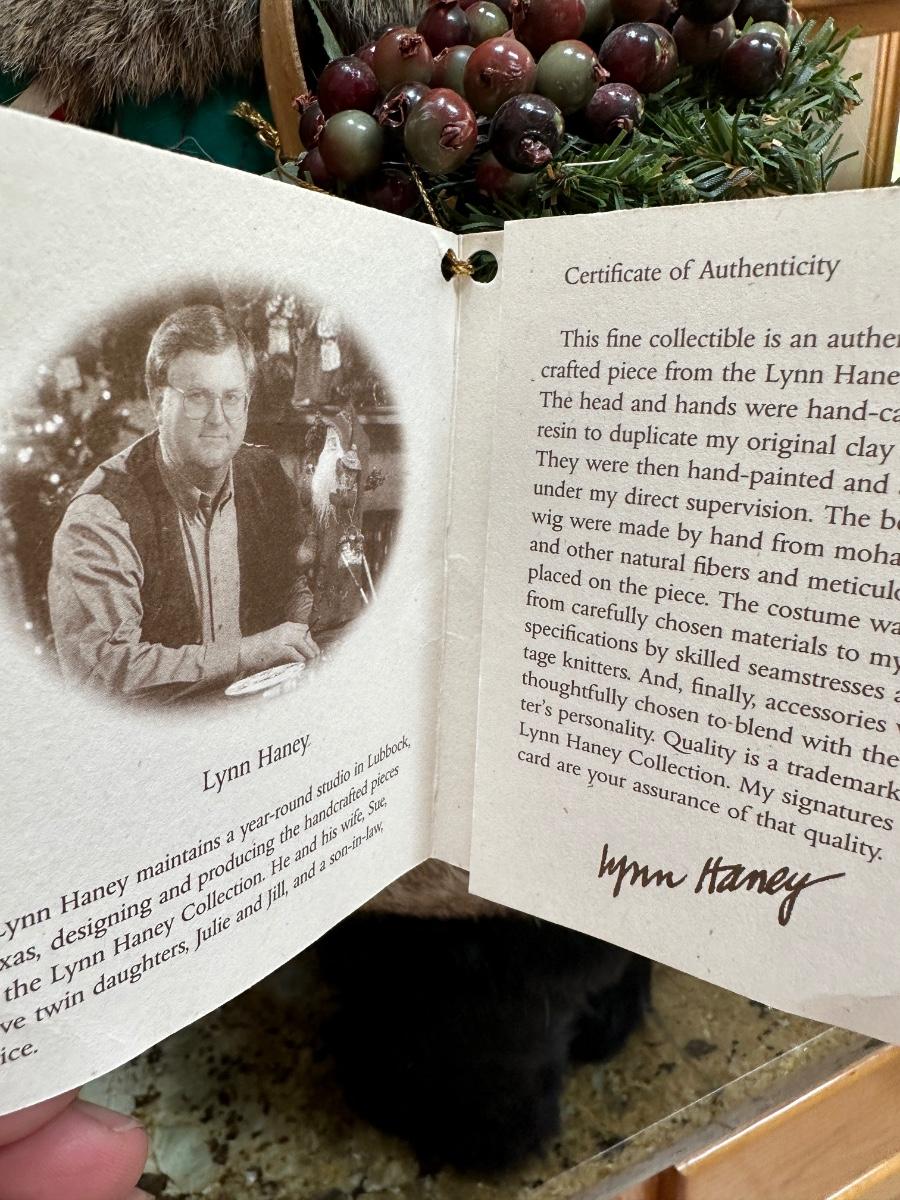 Lynn Haney
Lynn Haney maintains a year-round studio in Lubbock,
xas, designing and producing the handcrafted pieces
the Lynn Haney Collection. He and his wife, Sue,
ve twin daughters, Julie and Jill, and a son-in-law,
ice.
Certificate of Authenticity
This fine collectible is an authen
crafted piece from the Lynn Hane
The head and hands were hand-ca
resin to duplicate my original clay
They were then hand-painted and
under my direct supervision. The be
wig were made by hand from moha
and other natural fibers and meticulo
placed on the piece. The costume wa
from carefully chosen materials to my
specifications by skilled seamstresses a
tage knitters. And, finally, accessories
thoughtfully chosen to blend with the
ter's personality. Quality is a trademark
Lynn Haney Collection. My signatures
card are your assurance of that quality.
Lynn Haney